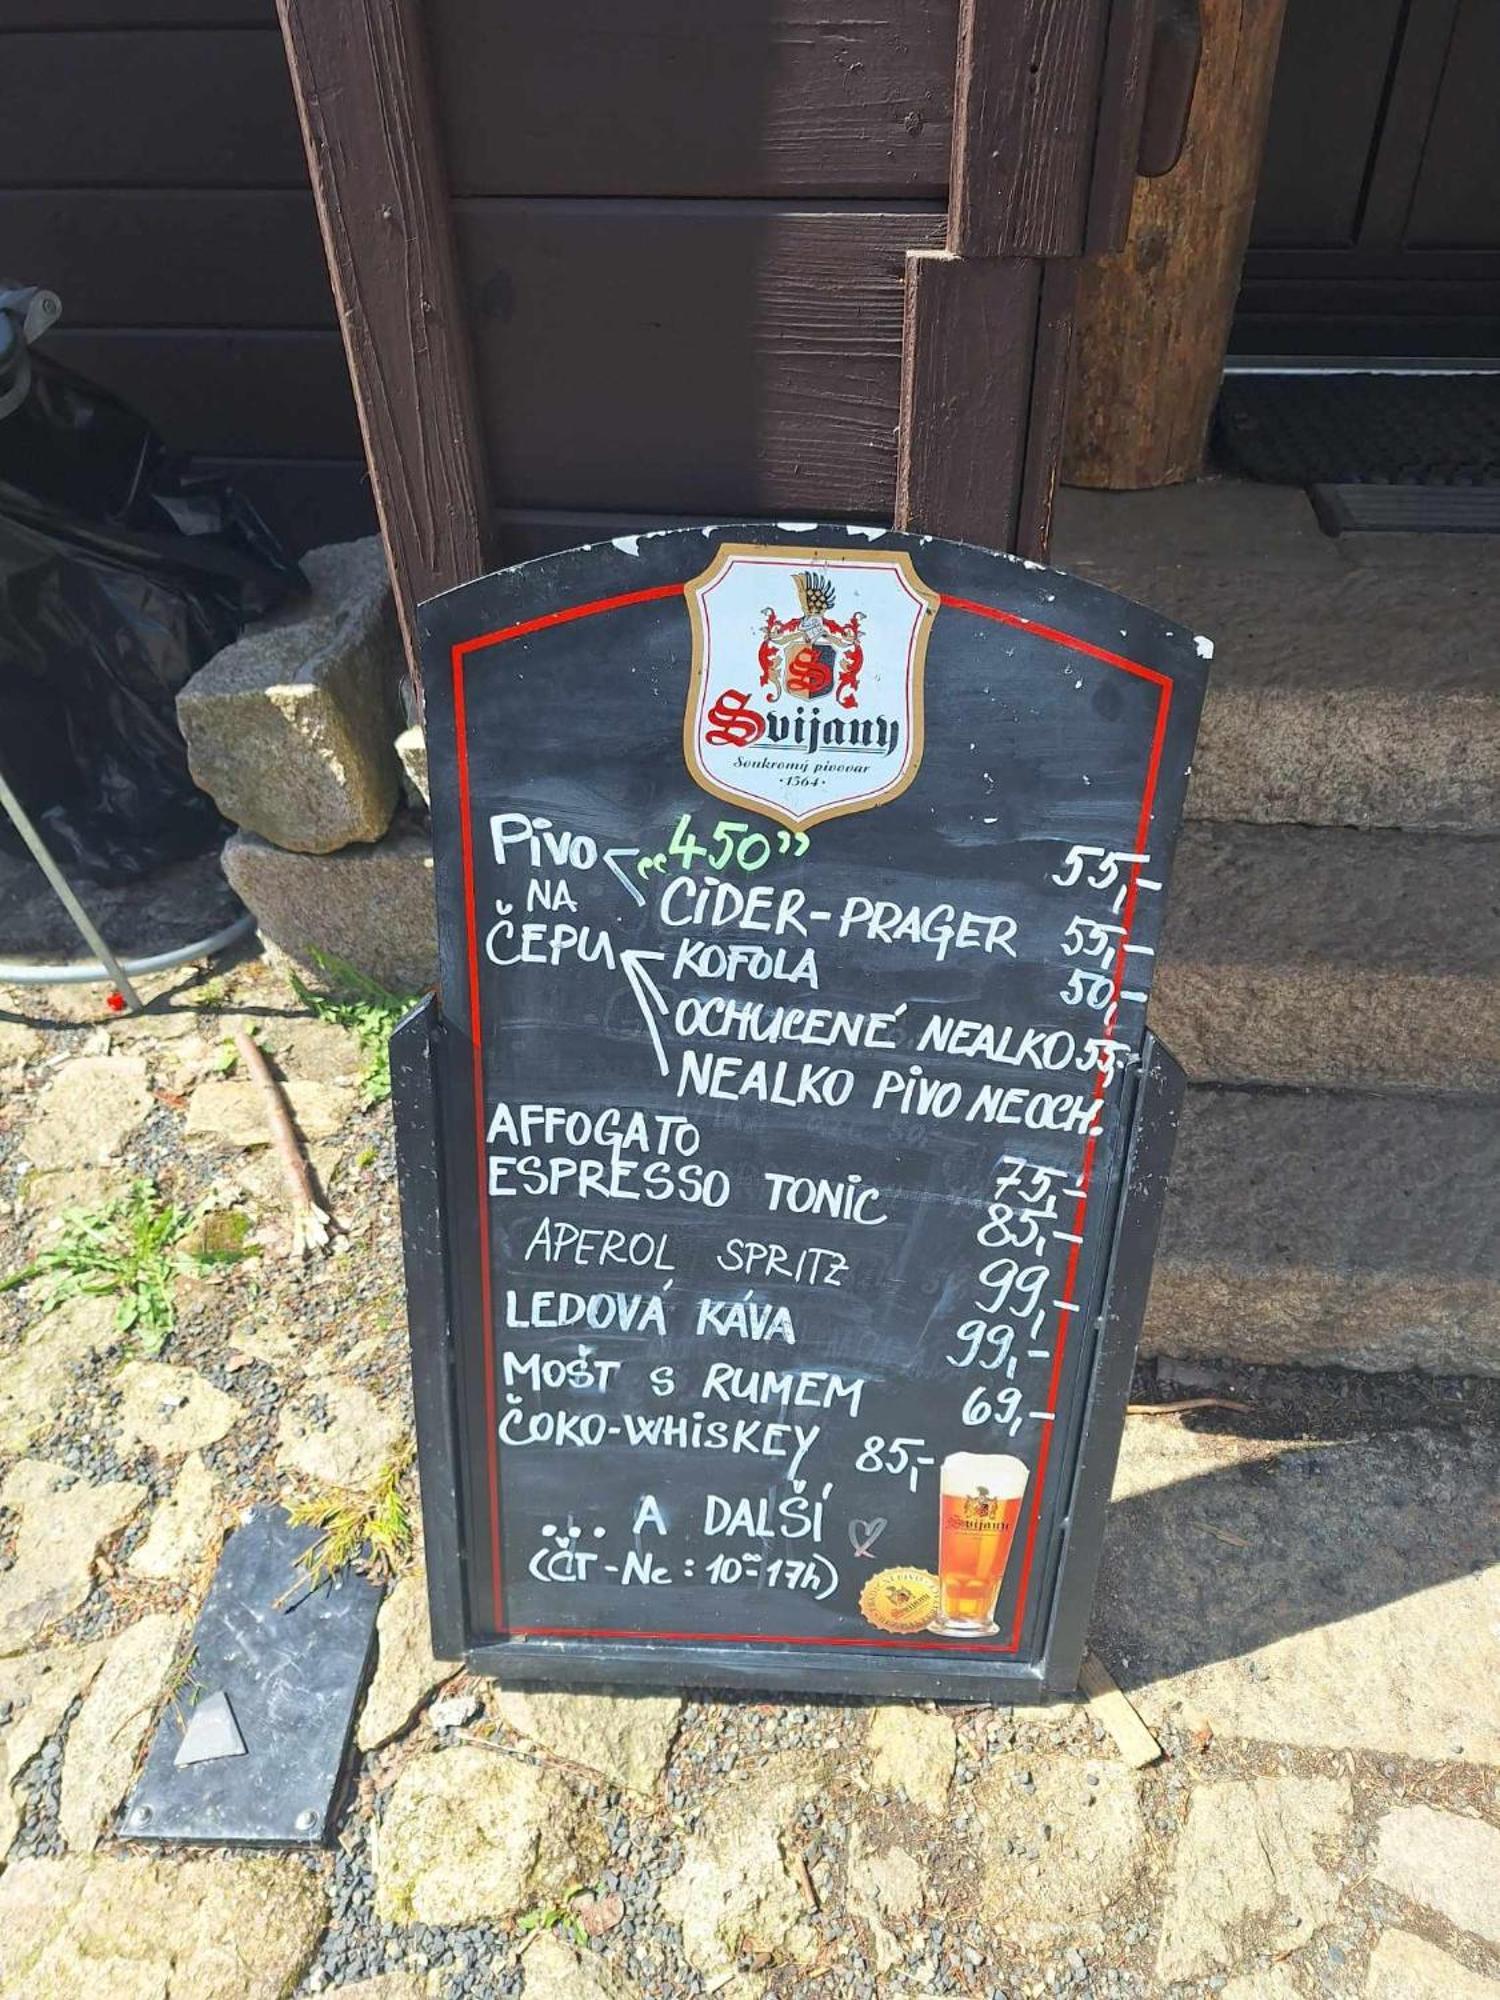 Svijany
Soukromý pivovar
·1564·
Pivo „450” 55,-
NA CiDER-PRAGER 55,-
ČEPU KOFOLA 50,-
OCHUCENÉ NEALKO 55,-
NEALKO PiVO NEOCH.
AFFOGATO 75,-
ESPRESSO TONiC 85,-
APEROL SPRITZ 99,-
LEDOVÁ KÁVA 99,-
MOŠT S RUMEM 69,-
ČOKO-WHiSKEY 85,-
... A DALŠÍ
(ČT-Ne: 10⁰⁰-17h)
Svijany